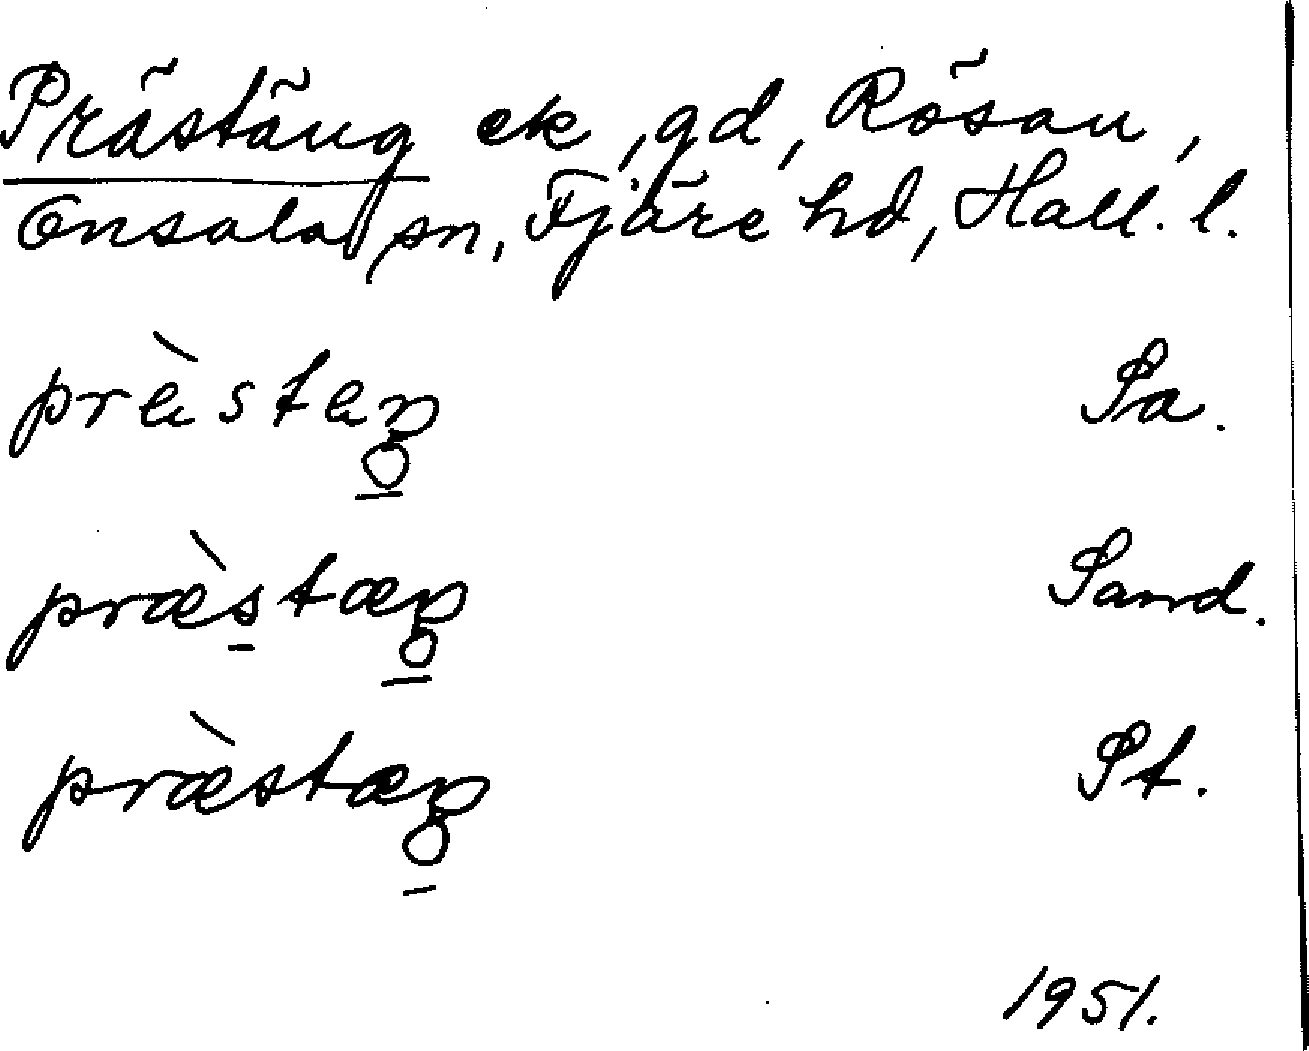 Prästäng ek, gd, Rösan,
Onsala sn, Fjäre hd, Hall. l.
præ̀stæŋ Sa.
præ̀stæŋ Sand.
præ̀stæŋ St.
1951.